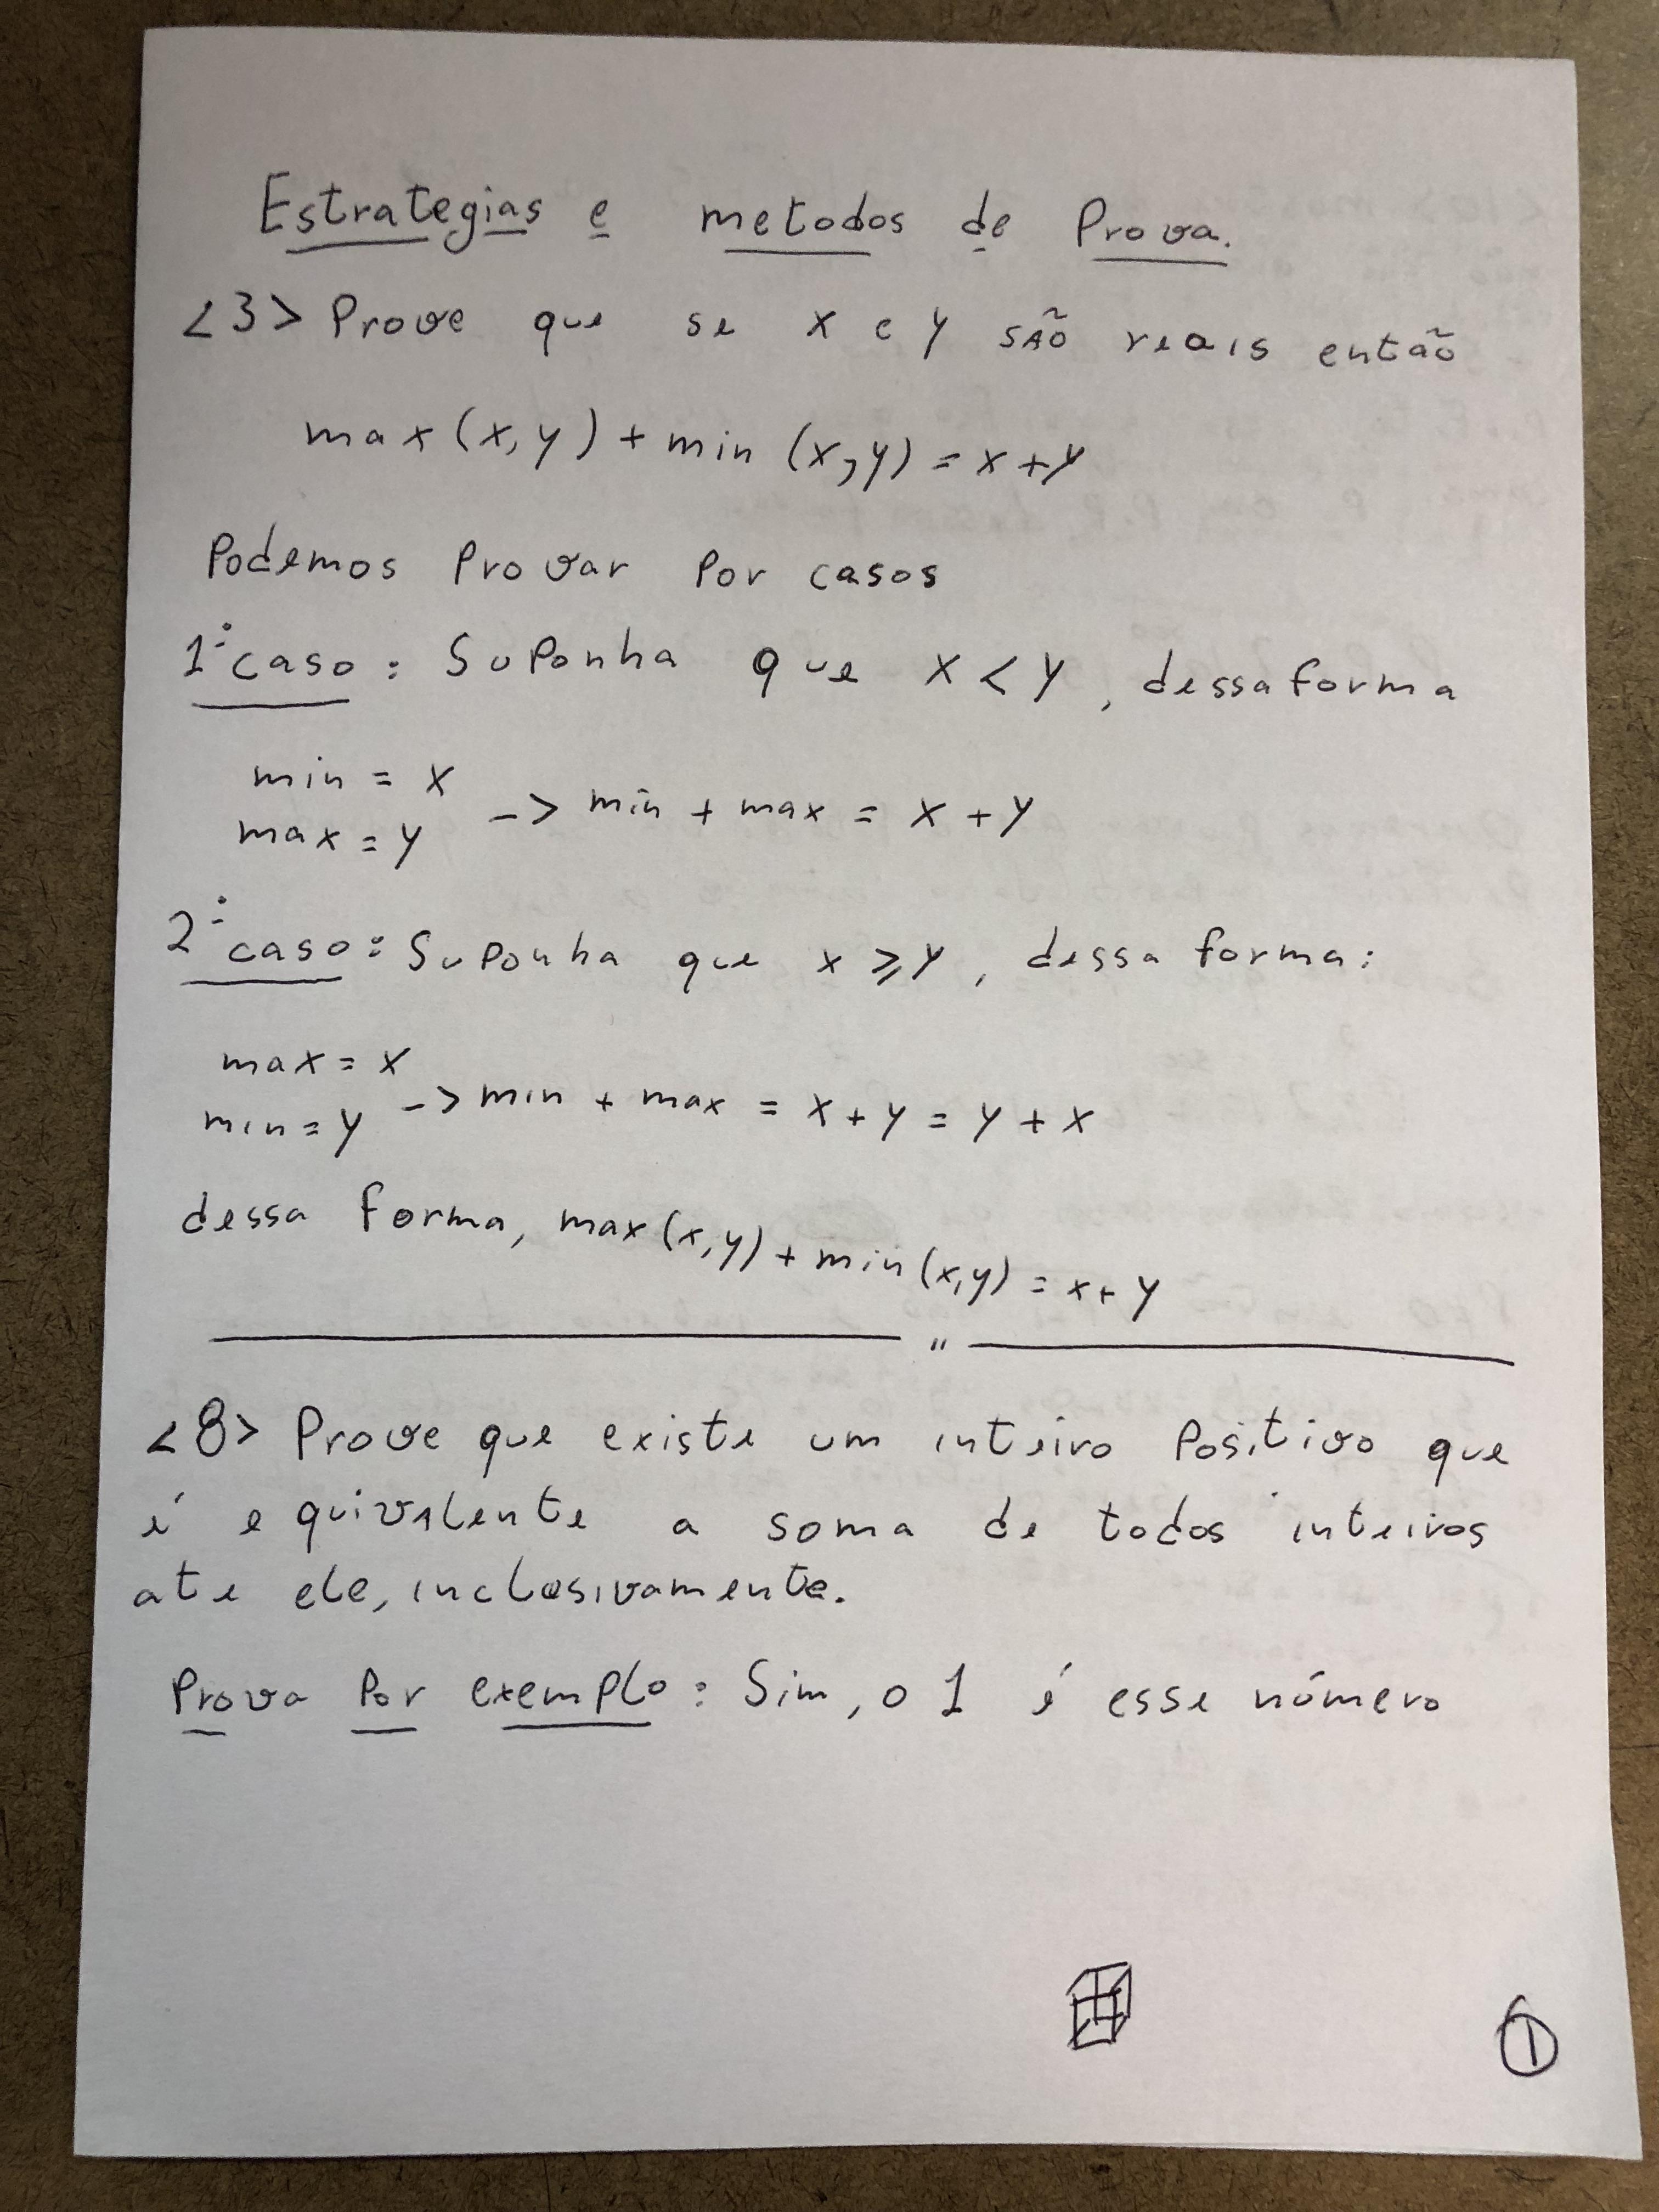 Estrategias e metodos de Prova.
<3> Prove que se x e y são reais então
max(x,y) + min(x,y) = x+y
Podemos Provar Por casos
1º caso: Suponha que x < y, dessa forma
min = x
max = y -> min + max = x + y
2º caso: Suponha que x ≥ y, dessa forma:
max = x
min = y -> min + max = x + y = y + x
dessa forma, max(x,y) + min(x,y) = x + y
"
<8> Prove que existe um inteiro Positivo que
é equivalente a soma de todos inteiros
ate ele, inclusivamente.
Prova Por exemplo: Sim, o 1 é esse número
1